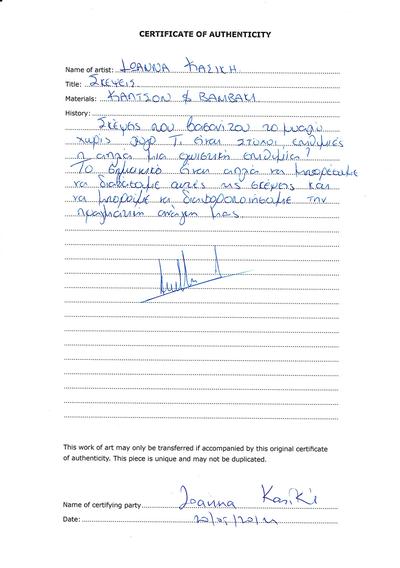 CERTIFICATE OF AUTHENTICITY
Name of artist: ΙΩΑΝΝΑ ΚΑΣΙΚΗ
Title: ΣΚΕΨΕΙΣ
Materials: ΚΑΛΤΣΟΝ & ΒΑΜΒΑΚΙ
History:
Σκέψεις που βασανίζουν το μυαλό
χωρίς Τι είναι στόχοι, επιθυμίες
ή απλά μια επιθυμία?
Το σημαντικό είναι απλά να μπορέσουμε
να διαβάσουμε αυτές τις σκέψεις και
να μπορούμε να διαφοροποιήσουμε την
πραγματική ανάγκη μας.
This work of art may only be transferred if accompanied by this original certificate
of authenticity. This piece is unique and may not be duplicated.
Name of certifying party Joanna Kasiki
Date: